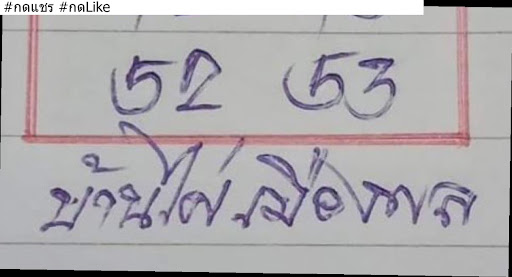 #กดแชร์ #กดLike
52 53
บ้านไผ่เมืองพล